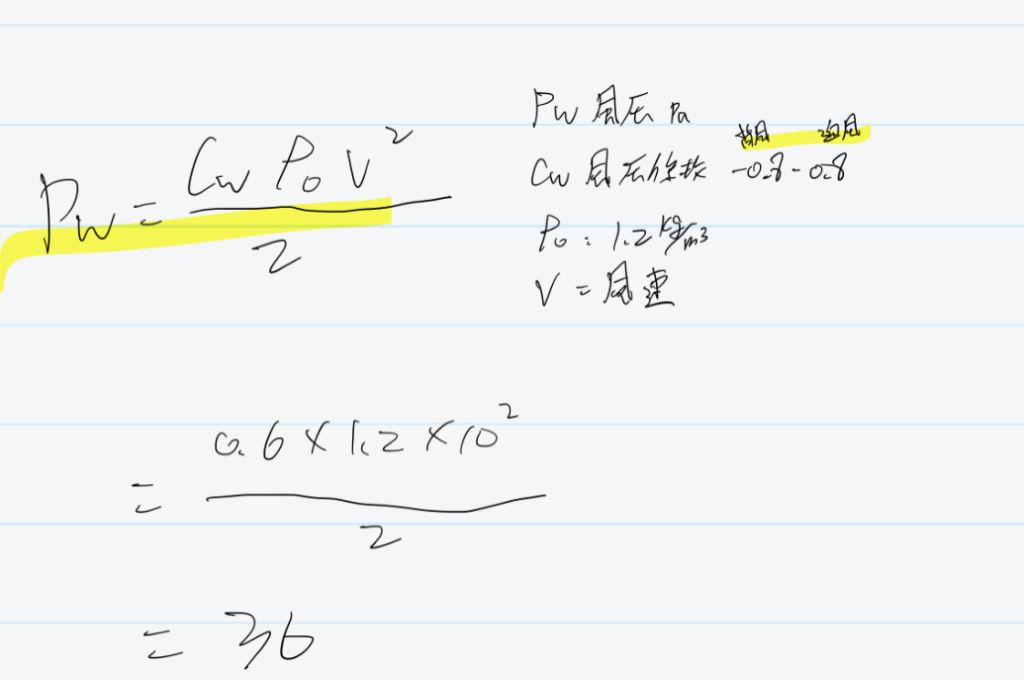 Pw = Cw ρ₀ V² / 2
Pw 風压 Pa
背風 迎風
Cw 風压係数 -0.8 - 0.8
ρ₀ : 1.2 kg/m3
V = 風速
= 0.6 × 1.2 × 10² / 2
= 36